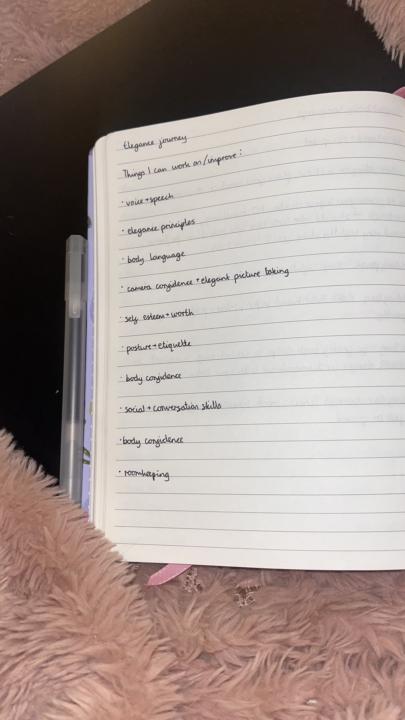 Elegance journey
Things I can work on/improve:
· voice + speech
· elegance principles
· body language
· camera confidence + elegant picture taking
· self esteem + worth
· posture + etiquette
· body confidence
· social + conversation skills
· body confidence
· roomkeeping